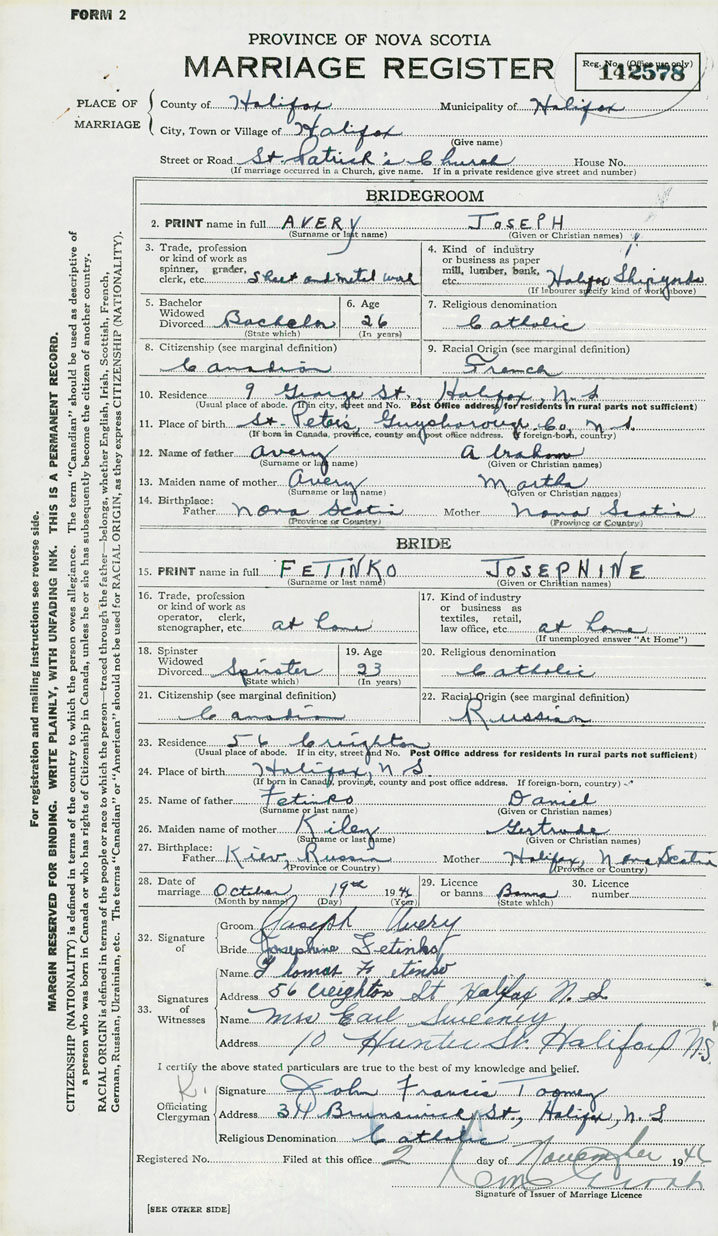 FORM 2
PROVINCE OF NOVA SCOTIA
MARRIAGE REGISTER
Reg. No. (Office use only)
142578
PLACE OF MARRIAGE
County of Halifax Municipality of Halifax
City, Town or Village of Halifax
(Give name)
Street or Road St. Patrick's Church House No.
(If marriage occurred in a Church, give name. If in a private residence give street and number)
BRIDEGROOM
2. PRINT name in full AVERY JOSEPH
(Surname or last name) (Given or Christian names)
3. Trade, profession or kind of work as spinner, grader, clerk, etc. Sheet and metal work
4. Kind of industry or business as paper mill, lumber, bank, etc. Halifax Shipyards
(If labourer specify kind of work above)
5. Bachelor Widowed Divorced Bachelor
(State which)
6. Age 26
(In years)
7. Religious denomination
Catholic
8. Citizenship (see marginal definition)
Canadian
9. Racial Origin (see marginal definition)
French
10. Residence 9 George St., Halifax, N.S
(Usual place of abode. If in city, street and No. Post Office address for residents in rural parts not sufficient)
11. Place of birth St. Peters, Guysborough Co, N.S.
(If born in Canada, province, county and post office address. If foreign-born, country)
12. Name of father Avery Abraham
(Surname or last name) (Given or Christian names)
13. Maiden name of mother Avery Martha
(Surname or last name) (Given or Christian names)
14. Birthplace:
Father Nova Scotia Mother Nova Scotia
(Province or Country) (Province or Country)
BRIDE
15. PRINT name in full FETINKO JOSEPHINE
(Surname or last name) (Given or Christian names)
16. Trade, profession or kind of work as operator, clerk, stenographer, etc. at home
17. Kind of industry or business as textiles, retail, law office, etc. at home
(If unemployed answer "At Home")
18. Spinster Widowed Divorced Spinster
(State which)
19. Age 23
(In years)
20. Religious denomination
Catholic
21. Citizenship (see marginal definition)
Canadian
22. Racial Origin (see marginal definition)
Russian
23. Residence 56 Creighton
(Usual place of abode. If in city, street and No. Post Office address for residents in rural parts not sufficient)
24. Place of birth Halifax, N.S.
(If born in Canada, province, county and post office address. If foreign-born, country)
25. Name of father Fetinko Daniel
(Surname or last name) (Given or Christian names)
26. Maiden name of mother Kiley Gertrude
(Surname or last name) (Given or Christian names)
27. Birthplace:
Father Kiev, Russia Mother Halifax, Nova Scotia
(Province or Country) (Province or Country)
28. Date of marriage October 19th 1946
(Month by name) (Day) (Year)
29. Licence or banns Banns
(State which)
30. Licence number
32. Signature of
Groom Joseph Avery
Bride Josephine Fetinko
33. Signatures of Witnesses
Name Thomas Fetinko
Address 56 Creighton St Halifax N.S
Name Mrs Earl Sweeney
Address 10 Hunter St. Halifax N.S.
I certify the above stated particulars are true to the best of my knowledge and belief.
Officiating Clergyman
Signature John Francis Toomey
Address 34 Brunswick St., Halifax, N.S
Religious Denomination Catholic
Registered No. Filed at this office 2 day of November 1946
Signature of Issuer of Marriage Licence
[SEE OTHER SIDE]
For registration and mailing instructions see reverse side.
MARGIN RESERVED FOR BINDING. WRITE PLAINLY, WITH UNFADING INK. THIS IS A PERMANENT RECORD.
CITIZENSHIP (NATIONALITY) is defined in terms of the country to which the person owes allegiance. The term "Canadian" should be used as descriptive of
a person who was born in Canada or who has rights of Citizenship in Canada, unless he or she has subsequently become the citizen of another country.
RACIAL ORIGIN is defined in terms of the people or race to which the person—traced through the father—belongs, whether English, Irish, Scottish, French,
German, Russian, Ukrainian, etc. The terms "Canadian" or "American" should not be used for RACIAL ORIGIN, as they express CITIZENSHIP (NATIONALITY).